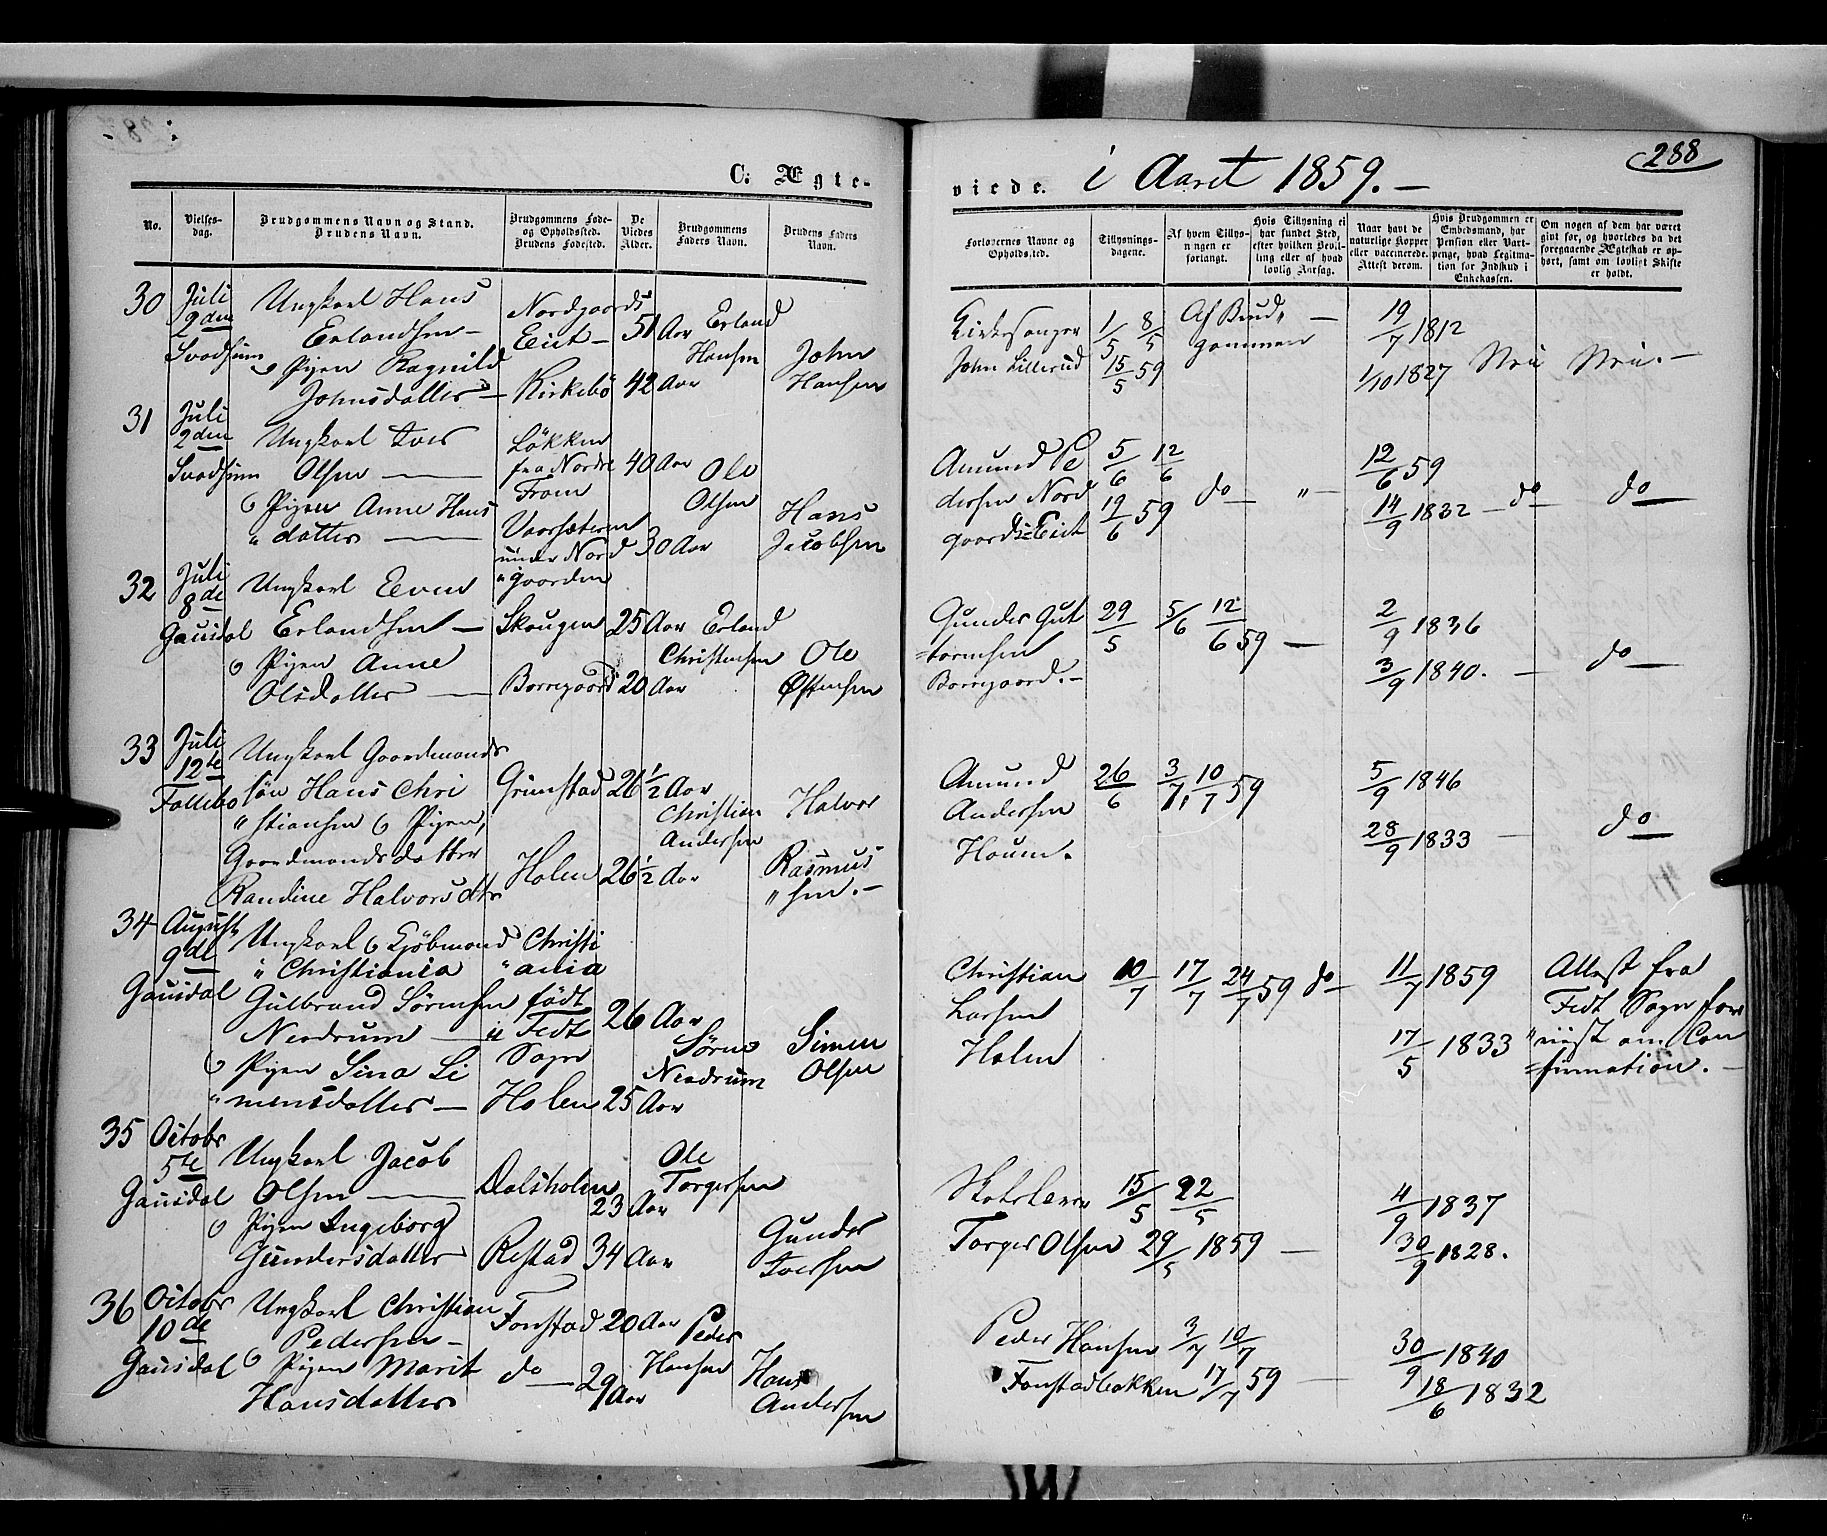 288
C: Ægte-
viede. i Aaret 1859.-
No.
Vielses-
dag.
Brudgommens Navn og Stand.
Brudens Navn.
Brudgommens Føde-
og Opholdssted.
Brudens Fødested.
De
Viedes
Alder.
Brudgommens
Faders Navn.
Brudens Faders
Navn.
Forlovernes Navne og
Opholdssted.
Tillysnings-
dagene.
Af hvem Tillys-
ningen er
forlangt.
Hvis Tillysning ei
har fundet Sted,
efter hvilken Bevil-
ling eller af hvad
lovlig Aarsag.
Naar havt de
naturlige Kopper
eller vaccinerede.
Attest derom.
Hvis Brudgommen er
Embedsmand, har
Pension eller Vart-
penge, hvad Legitima-
tion for Indskud i
Enkekassen.
Om nogen af dem har været
givt før, og hvorledes da det
foregaaende Ægteskab er op-
hørt, samt om lovligt Skifte
er holdt.
30
Juli
2den
Ungkarl Hans
Erlandsen -
Pigen Ragnild
Johnsdatter -
Nordgaards
Eiet -
Kirkebö
51 Aar
42 Aar
Erland
Hansen
John
Hansen
Kirkesanger
John Lillerud
1/5 8/5
15/5 59
Af Brud„
gommen
-
19/7 1812
1/10 1827
Nei
Nei. -
31
Juli
2den
Ungkarl Iver
Olsen -
Pigen Anne Hans
„ datter -
Lökken
fra Nordre
From
under Nord
„ gaarden
40 Aar
30 Aar
Ole
Olsen
Hans
Jacobsen
Amund Pe
dersen Nord
gaards Eiet
5/6 12/6
19/6 59
do -
„ -
12/6 59
14/9 1832
- do -
do -
32
Juli
8de
Gausdal
Ungkarl Even
Erlandsen -
Pigen Anne
Olsdatter -
Skougen
Borregaard
25 Aar
20 Aar
Erland
Christensen
Ole
Østensen
Gunder Gut
=tormsen
Borregaard. -
29/5 5/6 12/6 59 -
2/9 1836
3/9 1840. -
do -
33
Juli
12te
Follebo
Ungkarl Gaardmands
søn Hans Chri
„ stiansen & Pigen,
Gaardmandsdatter
Randine Halvorsdtr
Grimstad
Holen
26 1/2 Aar
26 1/2 Aar
Christian
Andersen
Halvor
Rasmus
„ sen. -
Amund
Andersen
Houm.
26/6 3/7, 10/7 59
5/9 1846
28/9 1833 -
do -
34
August
9de
Gausdal
Ungkarl & Kjöbmand
i Christiania
Gulbrand Sörensen
Nerdrum -
Pigen Sina Si
„ mensdatter -
Christi
„ ania
født
i Fedt
Sogn
Holen
26 Aar
25 Aar
Sören
Nerdrum
Simen
Olsen
Christian
Larsen
Holen
10/7 17/7 24/7 59 do -
11/7 1859
17/5 1833
Attest fra
Fedt Sogn fore
„ viist om Con
=firmation. -
35
Octobr
5te
Gausdal
Ungkarl Jacob
Olsen -
Pigen Ingeborg
Gundersdatter
Dalsholen
Restad
23 Aar
34 Aar
Ole
Torgersen
Gunder
Iversen
Torger Olsen
15/5 22/5
29/5 1859 -
4/9 1837
30/9 1828.
36
Octobr
10de
Gausdal
Ungkarl Christian
Pedersen -
Pigen Marit
Hansdatter
Fonstad
do -
20 Aar
29 Aar
Peder
Hansen
Hans
Andersen
Peder Hansen
Fonstadbakken
3/7 10/7
17/7 59 -
30/9 1840
18/6 1832